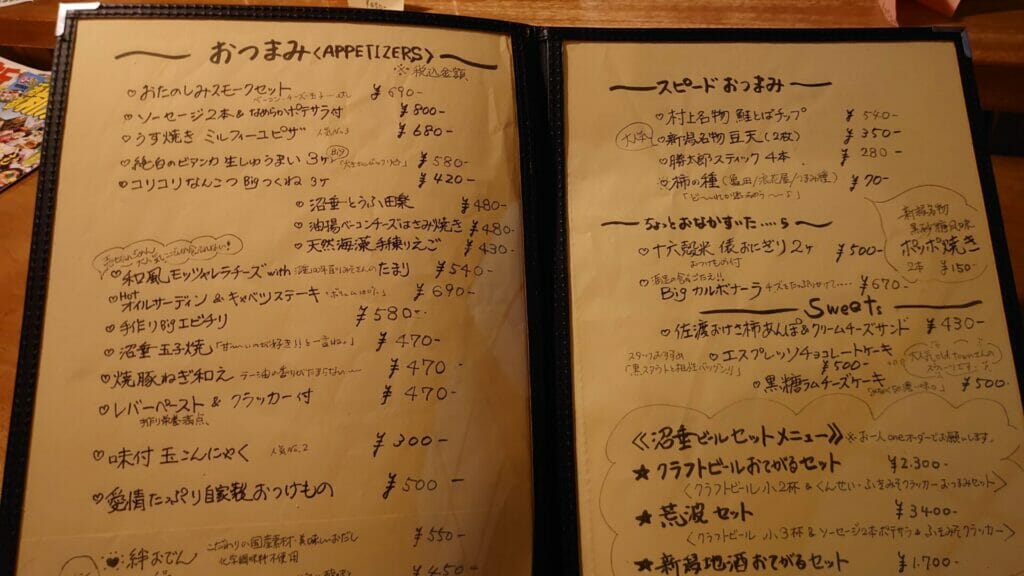 おつまみ〈APPETIZERS〉
※税込金額
♡おたのしみスモークセット ¥690-
♡ソーセージ2本&なめらかポテサラ付 ¥800-
♡うす焼き ミルフィーユピザ 人気No.3 ¥680-
♡純白のビアンカ 生しゅうまい 3ヶ Big ¥580-
♡コリコリなんこつ Bigつくね 3ヶ ¥420-
♡沼垂とうふ田楽 ¥480-
♡油揚ベーコンチーズはさみ焼き ¥480-
♡天然海藻 手練りえご ¥430-
♡和風モッツァレラチーズ with たまり ¥540-
♡Hot オイルサーディン&キャベツステーキ ¥690-
♡手作りBigエビチリ ¥580-
♡沼垂 玉子焼「甘〜いのが好き!!と一言ね。」 ¥470-
♡焼豚ねぎ和え ラー油の香りがたまらせん〜 ¥470
♡レバーペースト & クラッカー付 ¥410-
手作り栄養満点、
♡味付 玉こんにゃく 人気No.2 ¥300-
♡愛情たっぷり自家製おつけもの ¥500-
♥絆おでん こだわりの国産素材・美味しいおだし ¥550
化学調味料不使用
¥450-
スピードおつまみ
♡村上名物 鮭とばチップ ¥540-
♡新潟名物 豆天(2枚) ¥350-
♡勝太郎スティック 4本 ¥280-
♡柿の種(亀田/浪花屋/つまみ種) ¥70-
「ど〜れが出るかな〜♪」
ちょっとおなかすいた‥‥ら
♡十六穀米 俵おにぎり2ヶ ¥500-
おつけもの付
♡Big カルボナーラ ¥670-
新潟名物
黒砂糖風味
ポッポ焼き
2本 ¥150-
Sweets
♡佐渡おけさ柿あんぽ&クリームチーズサンド ¥430-
♡エスプレッソチョコレートケーキ
スタッフおすすめ
「黒スタウトと相性バツグン!!」
¥500-
♡黒糖ラムチーズケーキ ¥500-
《沼垂ビールセットメニュー》※お一人oneオーダーでお願いします。
★クラフトビールおてがるセット ¥2.300-
〈クラフトビール小2杯&くんせい・ふきみそクラッカーおつまみセット〉
★荒波セット ¥3400-
〈クラフトビール小3杯&ソーセージ2本ポテサラ&ふきみそクラッカー〉
★新潟地酒おてがるセット ¥1.700-